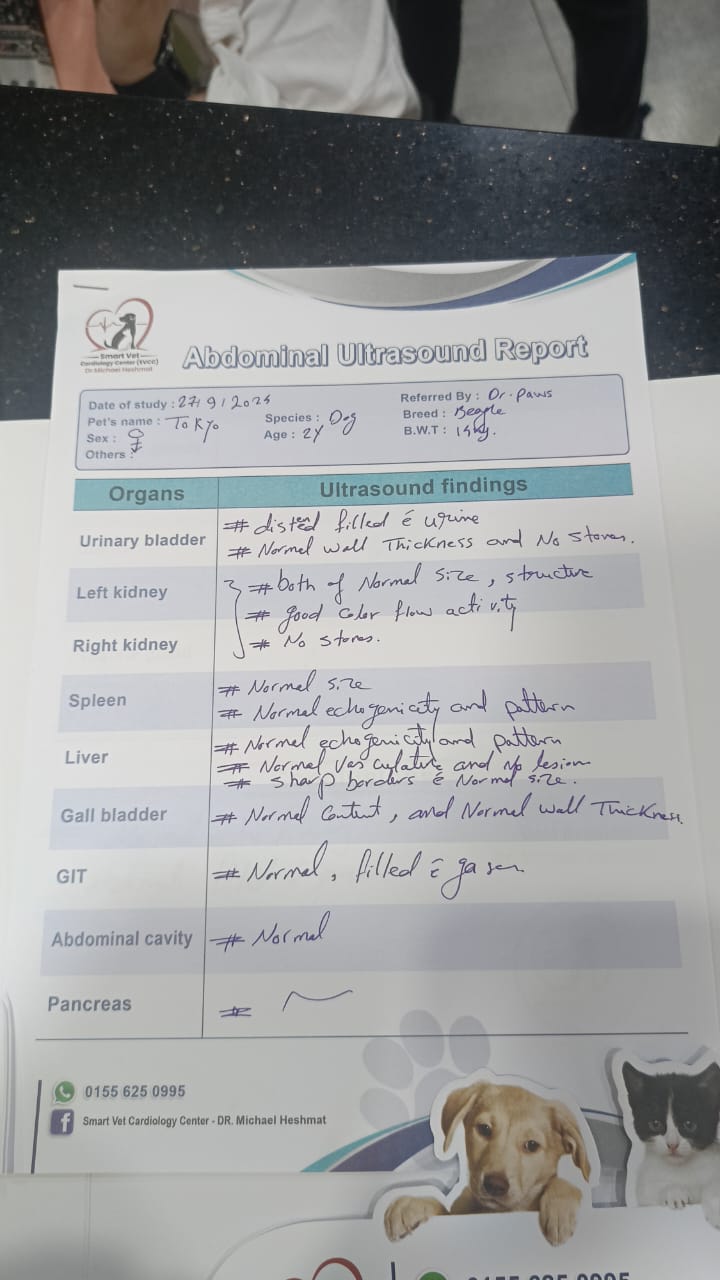 Smart Vet
Cardiology Center (SVCC)
Dr Michael Heshmat
Abdominal Ultrasound Report
Date of study : 27/9/2025
Referred By : Dr. Paws
Pet's name : Tokyo
Species : Dog
Breed : Beagle
Sex : ♀
Age : 2Y
B.W.T :
Others :
Organs
Ultrasound findings
Urinary bladder
# distend filled ĉ urine
# Normal wall Thickness and No stones.
Left kidney
Right kidney
# both of Normal size, structure
# good color flow activity
# No stones.
Spleen
# Normal size
# Normal echogenicity and pattern
Liver
# Normal echogenicity and pattern
# Normal Vasculature and No lesion
# sharp borders ĉ Normal size.
Gall bladder
# Normal Content, and Normal wall Thickness.
GIT
# Normal, filled ĉ gases
Abdominal cavity
# Normal
Pancreas
#
0155 625 0995
f
Smart Vet Cardiology Center - DR. Michael Heshmat